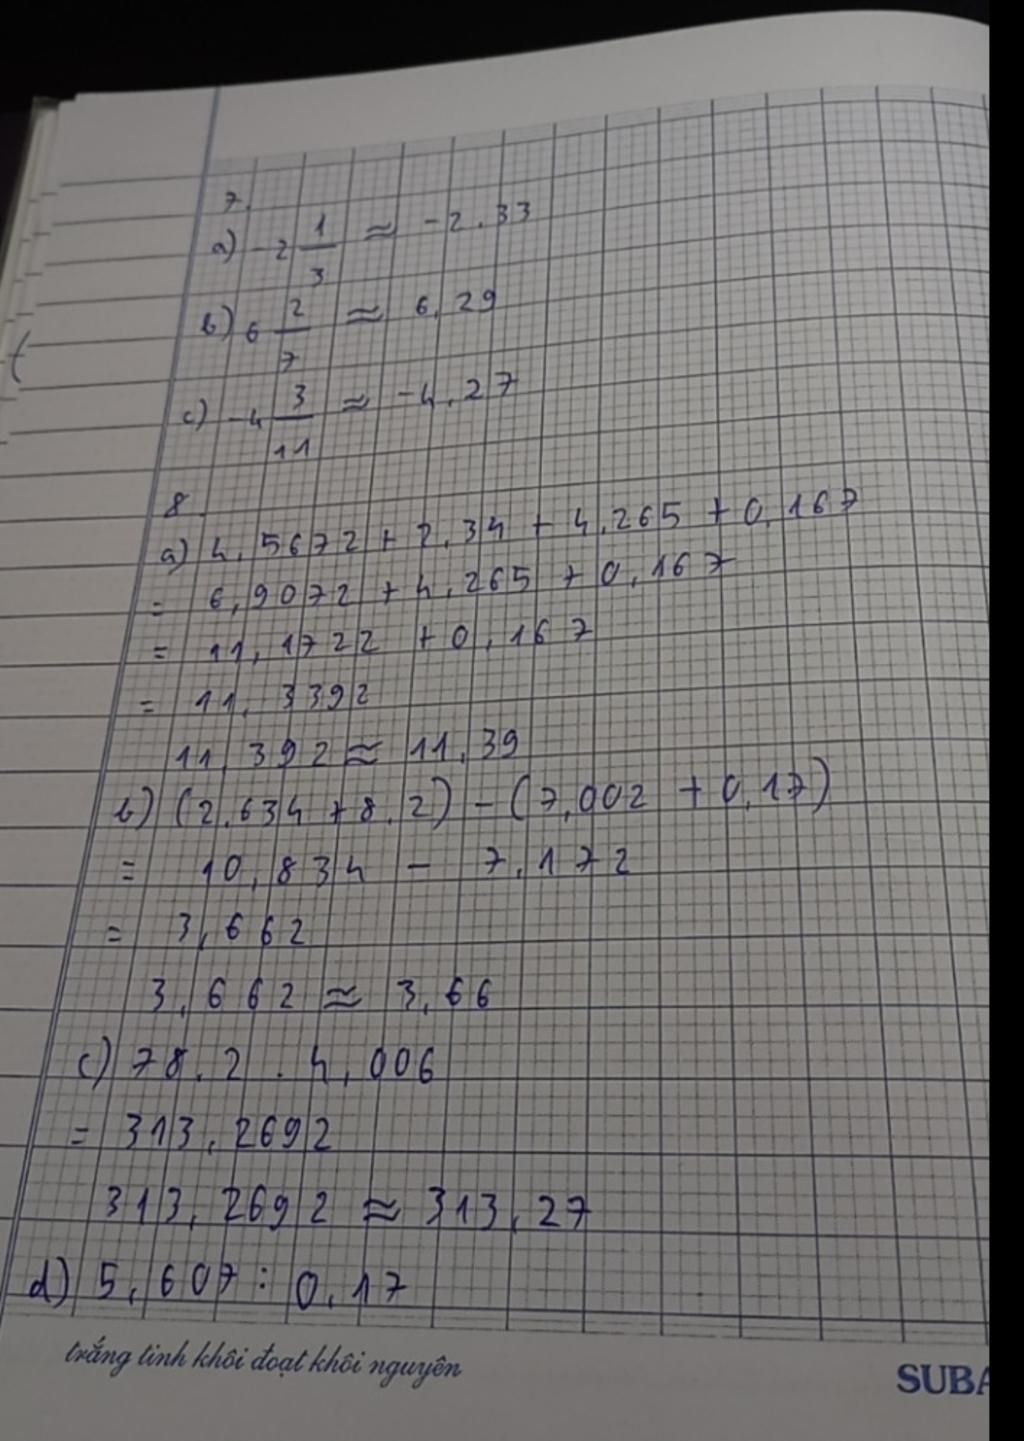 7.
a) -2 1/3 ≈ -2,33
b) 6 2/7 ≈ 6,29
c) -4 3/11 ≈ -4,27
8.
a) 4,5672 + 2,34 + 4,265 + 0,167
= 6,9072 + 4,265 + 0,167
= 11,1722 + 0,167
= 11,3392
11,392 ≈ 11,39
b) (2,634 + 8,2) - (7,002 + 0,17)
= 10,834 - 7,172
= 3,662
3,662 ≈ 3,66
c) 78,2 . 4,006
= 313,2692
313,2692 ≈ 313,27
d) 5,607 : 0,17
trắng tinh khôi đoạt khôi nguyên
SUBA